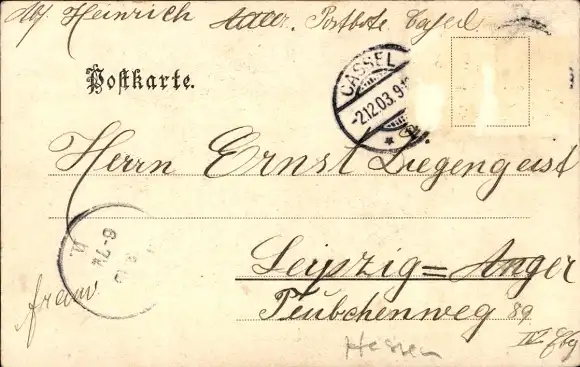 Abs. Heinrich Postbote, Cassel.
Postkarte.
CASSEL
-2.12.03.9
Herrn Ernst Ziegengeist
Leipzig=Anger
Teubchenweg 89
franco
Hessen